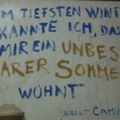 M TIEFSTEN WINT
KANNTE ICH, DAS
MIR EIN UNBES
ARER SOMME
WOHNT
ALBERT CAMU